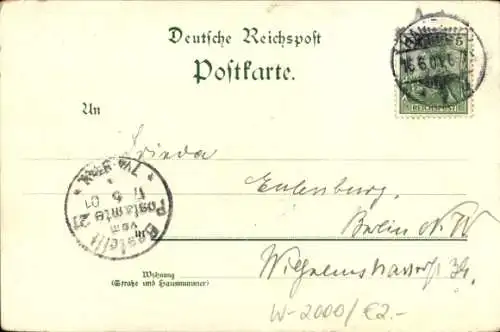 Deutsche Reichspost
Postkarte.
5
16.6.01.
REICHSPOST
An
Frieda
Eulenburg,
Berlin N.W
Wilhelmshavenerstr 34.
Bestellt
vom
Postamte 21
17 6
01
Wohnung
(Straße und Hausnummer)
W-2000/€2.-